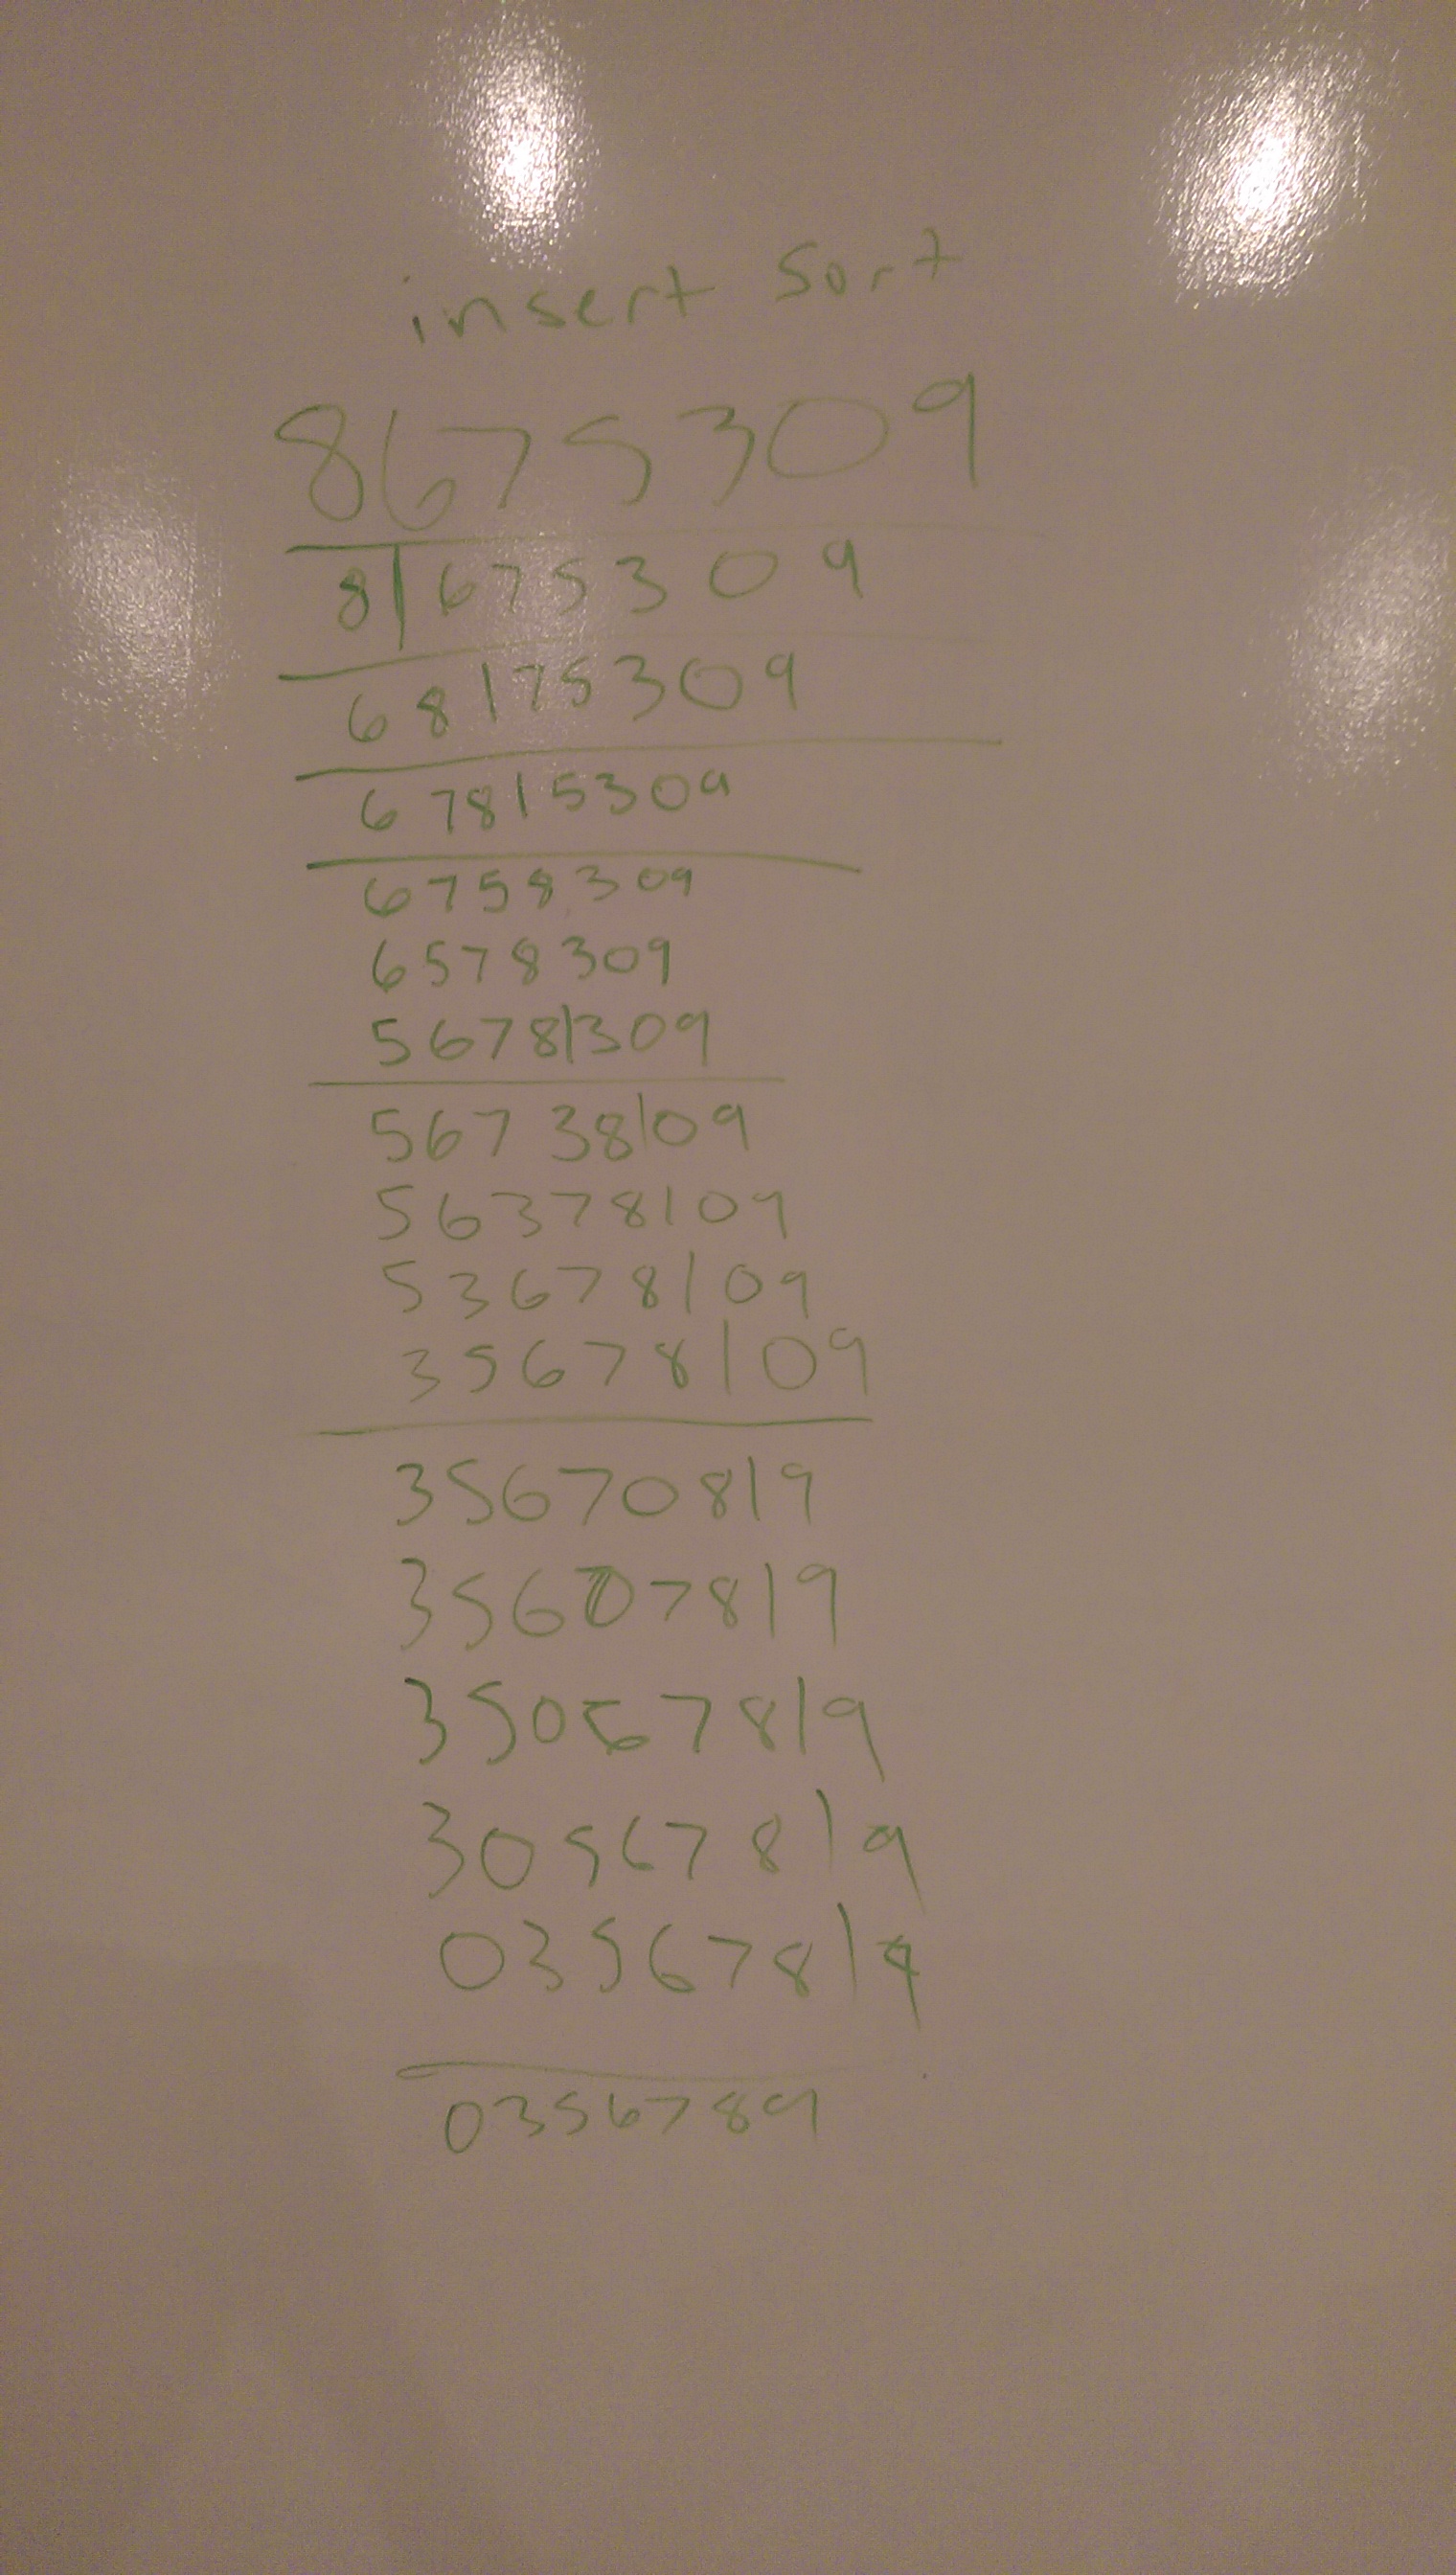 insert sort
8675309
8|675309
68|75309
678|5309
6758309
6578309
5678|309
56738|09
56378|09
53678|09
35678|09
356708|9
356078|9
350678|9
305678|9
035678|9
0356789